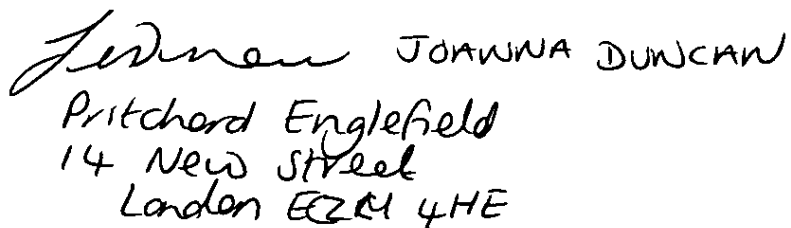 JOANNA DUNCAN
Pritchard Englefield
14 New Street
London EC2M 4HE